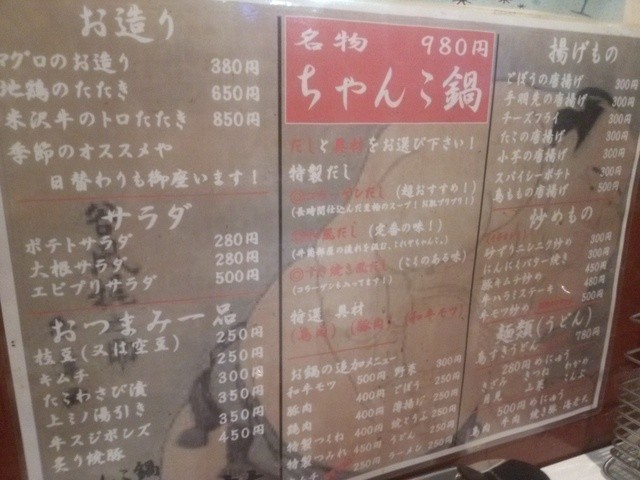 お造り
マグロのお造り 380円
地鶏のたたき 650円
米沢牛のトロたたき 850円
季節のオススメや
日替わりも御座います!
サラダ
ポテトサラダ 280円
大根サラダ 280円
エビプリサラダ 500円
おつまみ一品
枝豆(又は空豆) 250円
キムチ 250円
たこわさび漬 300円
上ミノ湯引き 350円
牛スジポンズ 350円
炙り焼豚 450円
名物 980円
ちゃんこ鍋
だしと具材をお選び下さい!
特製だし
(超おすすめ!)
だし (定番の味!)
(こくのある味)
特選 具材
(鳥肉) (豚肉) (和牛モツ)
お鍋の追加メニュー
和牛モツ 500円 野菜 300円
豚肉 400円 ごぼう 250円
鶏肉 400円 薄揚げ 250円
特製つくね 400円 焼とうふ 250円
特製つみれ 450円 うどん 250円
250円 ラーメン 250円
揚げもの
ごぼうの唐揚げ 300円
手羽先の唐揚げ 300円
チーズフライ 300円
たこの唐揚げ 300円
小芋の唐揚げ 300円
スパイシーポテト 300円
鳥もも唐揚げ 500円
炒めもの
砂ずりニンニク炒め 300円
にんにくバター焼き 300円
豚キムチ炒め 450円
牛ハラミステーキ 480円
牛モツ炒め 500円
麺類(うどん)
鳥すきうどん 780円
280円めにゅう
きざみ きつね わかめ
月見 山菜 こんぶ
500円めにゅう
鳥肉 牛肉 焼き豚 海老天